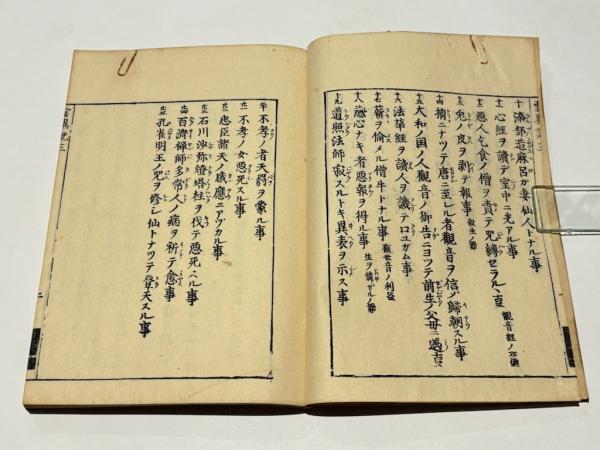 十 漆部造麻呂ガ妻仙人トナル事
十一 心経ヲ讀デ室中ニ光アル事
十二 惡人乞食ノ僧ヲ責テ咒縛セラルヽ事 觀音経ノ功德
十三 兎ノ皮ヲ剥テ報事 殺生ノ
十四 擒ニナツテ唐ニ至レル者觀音ヲ信ジ歸朝スル事
十五 大和ノ国ノ人觀音ノ御告ニヨツテ前生ノ父母ニ遇
十六 法華経ヲ讀人ヲ譏テ口ユガム事
十七 薪ヲ偷メル僧牛トナル事 觀世音ノ利益
十八 慈心ナキ者惡報ヲ得ル事 生ヲ
十九 道照法師寂スルトキ異表ヲ示ス事
二十 不孝ノ者天罸ヲ蒙ル事
廿一 不孝ノ女惡死スル事
廿二 忠臣諸天ノ感應ニアヅカル事
廿三 石川沙弥燈塔柱ヲ伐テ惡死スル事
廿四 百濟禅師多常人ノ病ヲ祈テ愈事
廿五 孔雀明王ノ咒ヲ修シ仙トナツテ登天スル事
霊異記三